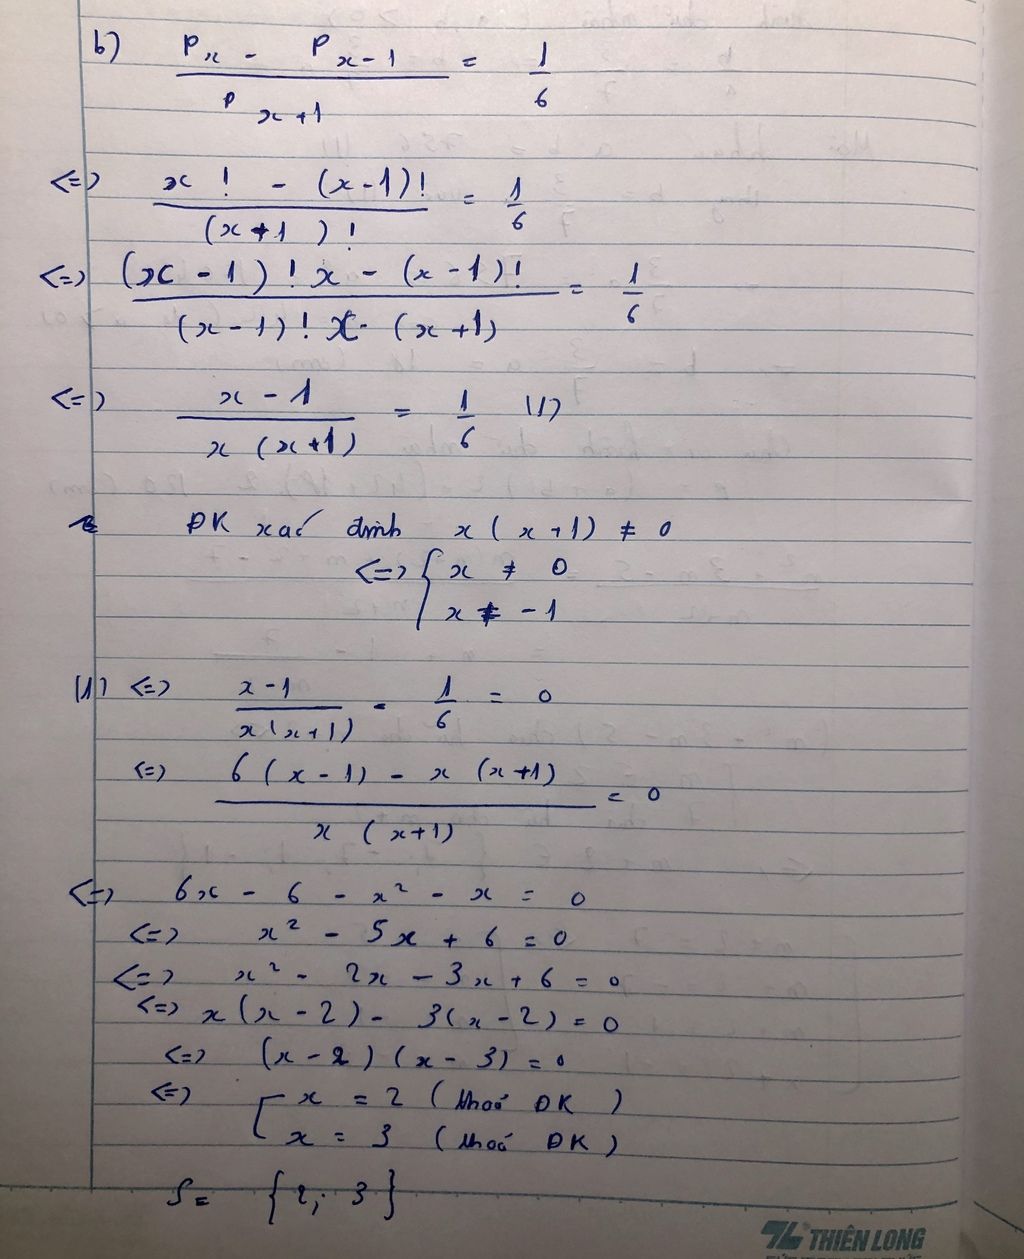 b) (P_x - P_{x-1}) / P_{x+1} = 1/6
<=> (x! - (x-1)!) / (x+1)! = 1/6
<=> ((x-1)! x - (x-1)!) / ((x-1)! x (x+1)) = 1/6
<=> (x-1) / (x(x+1)) = 1/6 (1)
ĐK xác định x(x+1) ≠ 0
<=> { x ≠ 0
x ≠ -1
(1) <=> (x-1) / (x(x+1)) - 1/6 = 0
<=> (6(x-1) - x(x+1)) / (x(x+1)) = 0
<=> 6x - 6 - x² - x = 0
<=> x² - 5x + 6 = 0
<=> x² - 2x - 3x + 6 = 0
<=> x(x-2) - 3(x-2) = 0
<=> (x-2)(x-3) = 0
<=> [ x = 2 (thoả ĐK)
x = 3 (thoả ĐK)
S = {2; 3}
THIÊN LONG